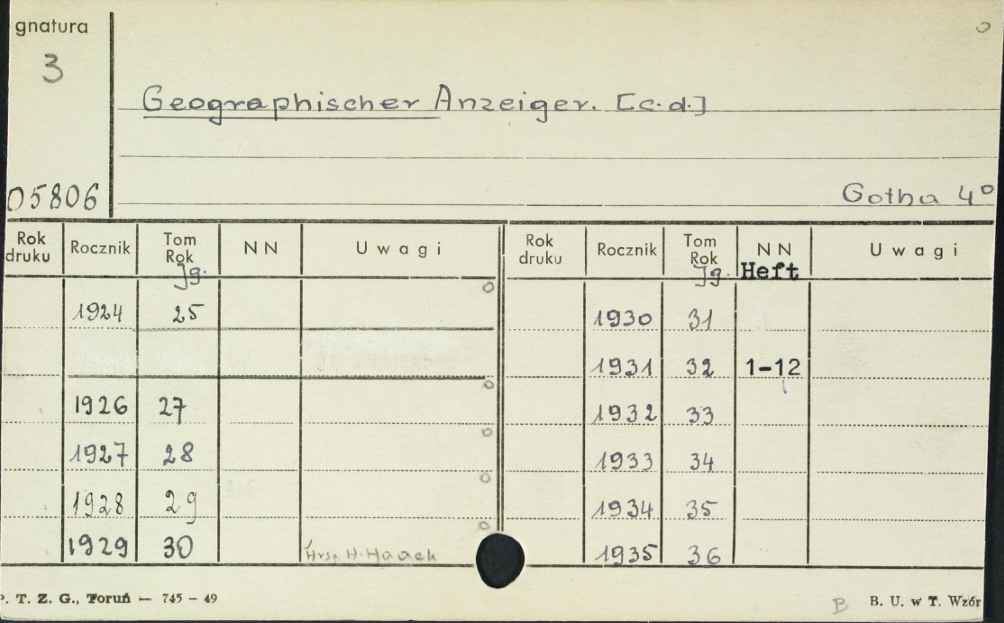 gnatura
3
Geographischer Anzeiger. [c.d.]
05806
Gotha 4°
Rok druku Rocznik Tom Rok Jg. NN Uwagi Rok druku Rocznik Tom Rok Jg. NN Heft Uwagi
1924 25 1930 31
1931 32 1-12
1926 27 1932 33
1927 28 1933 34
1928 29 1934 35
1929 30 Hrsg. H. Haack 1935 36
P. T. Z. G., Toruń — 745 – 49 B B. U. w T. Wzór